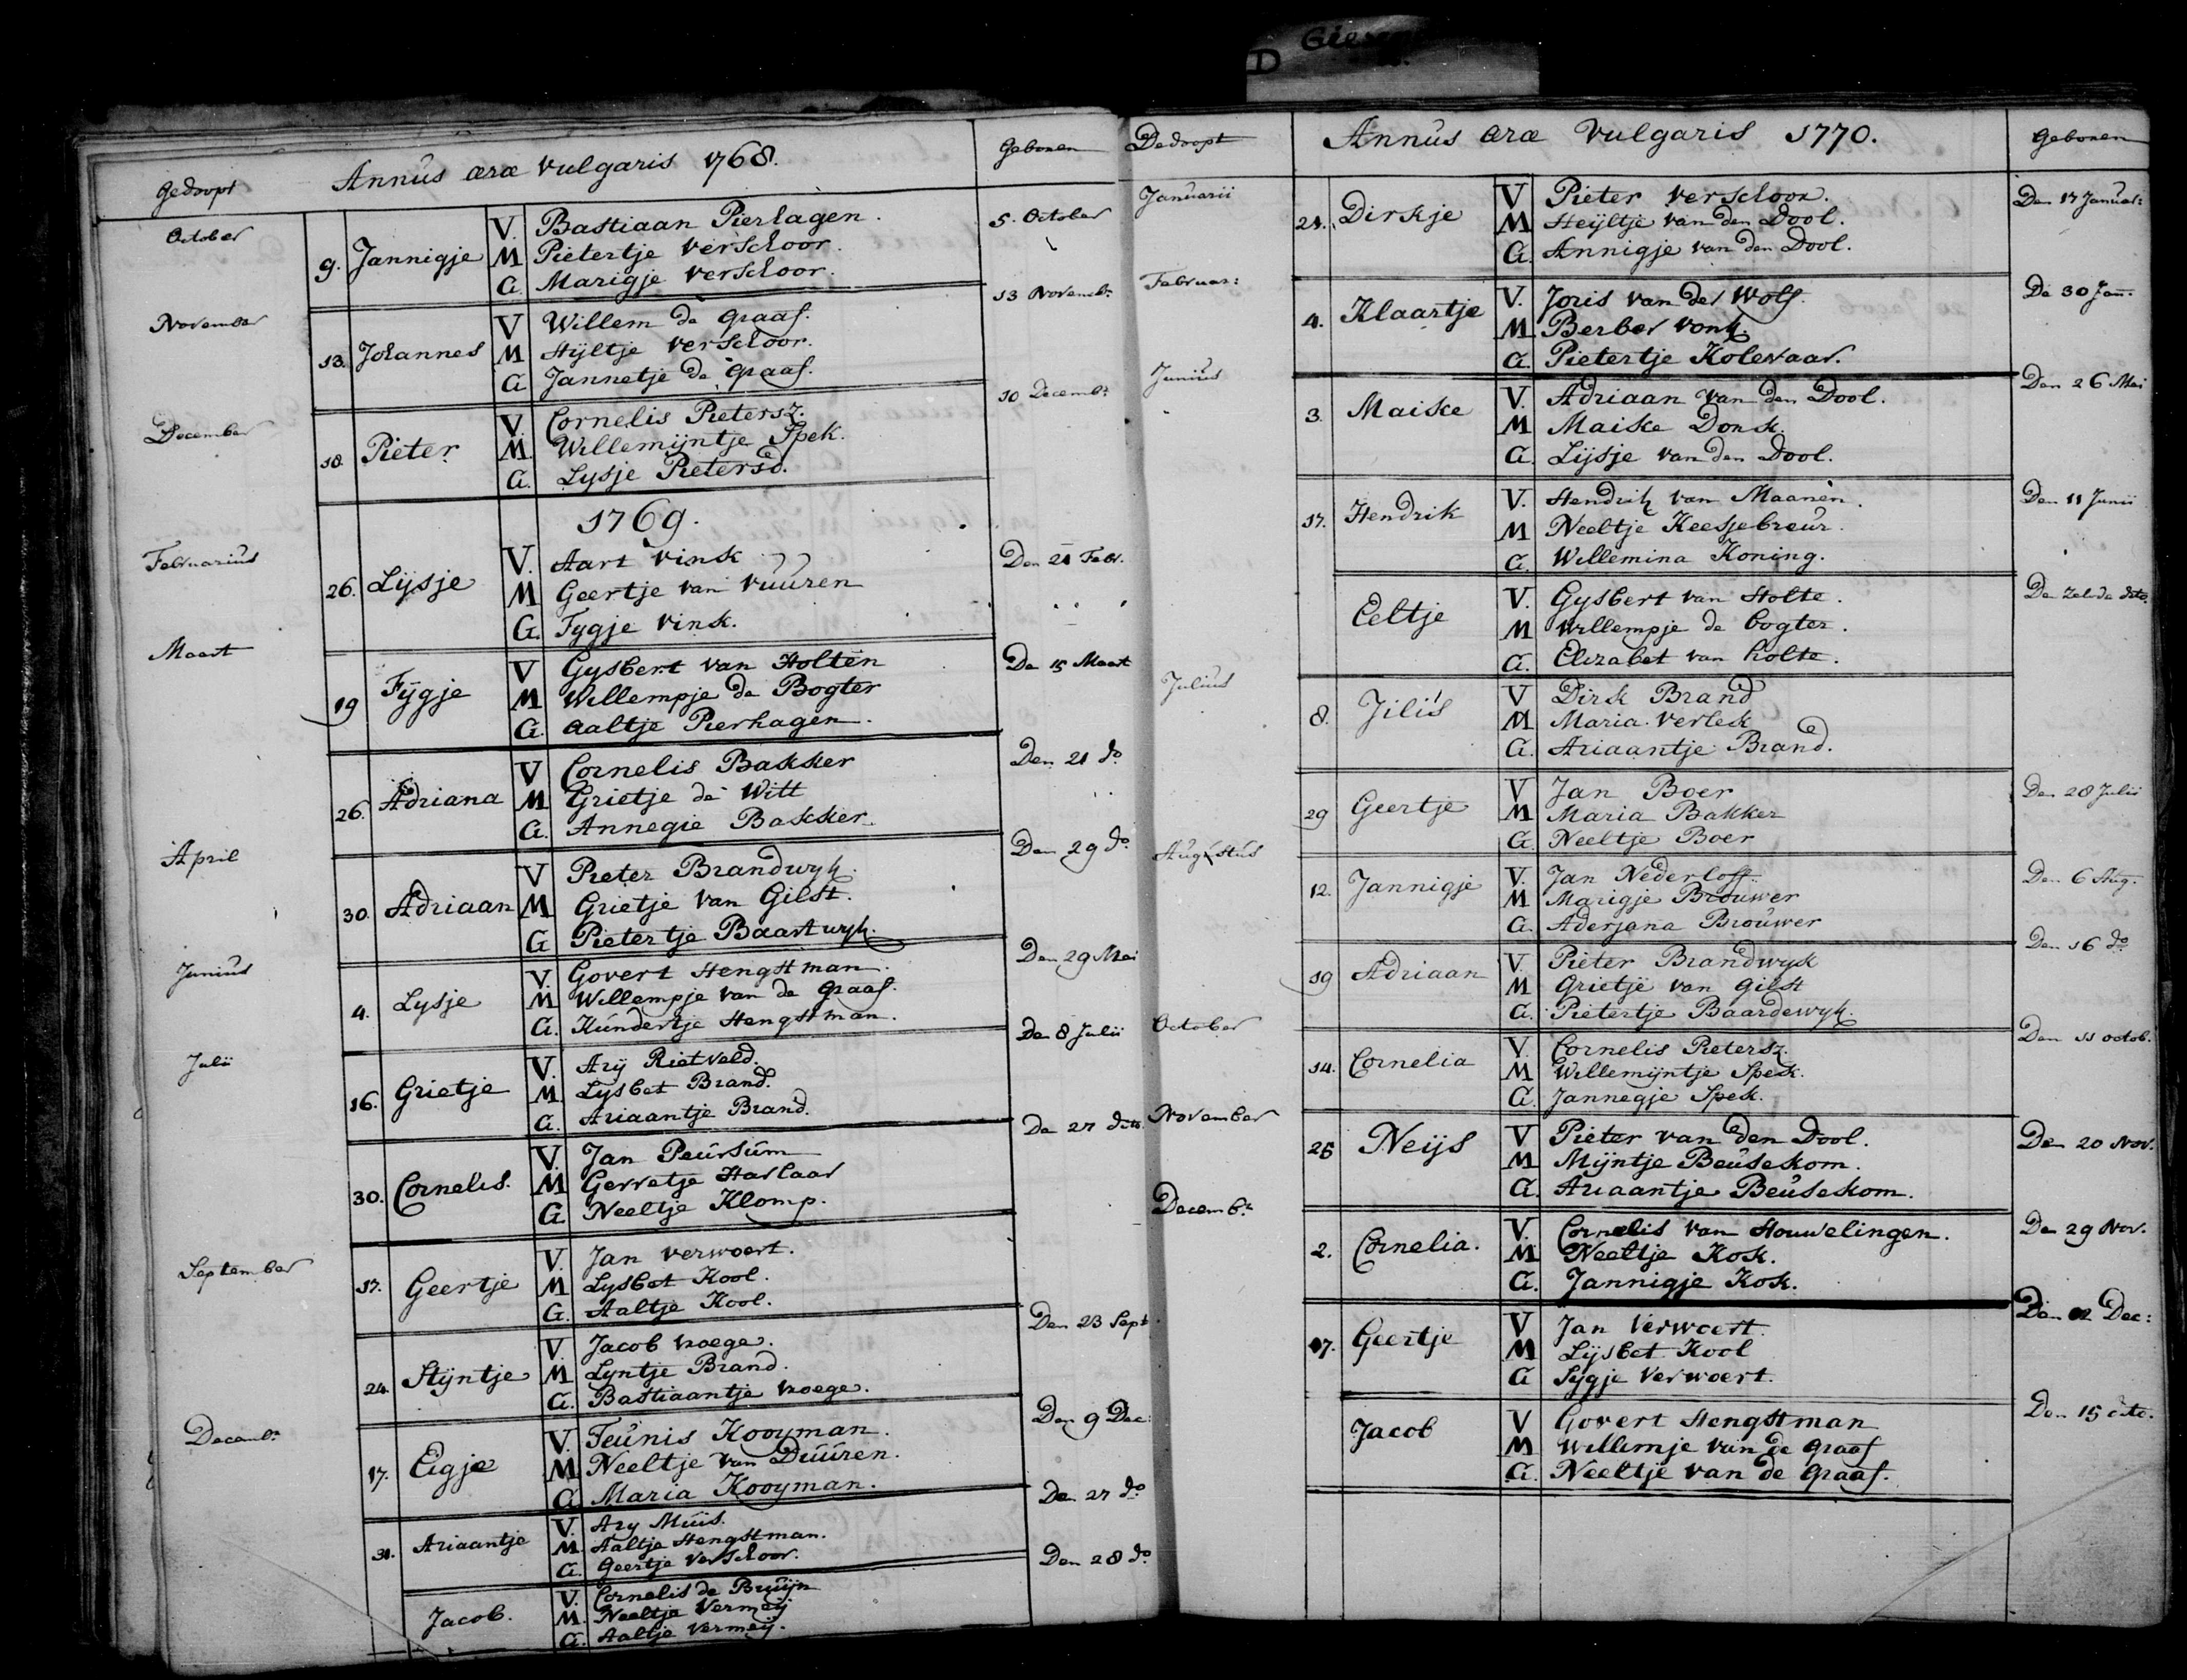 D Giese
Gedoopt Annus æræ vulgaris 1768. Geboren
October 9. Jannigje V. Bastiaan Pierlagen. 5. October
M Pietertje verschoor.
G. Marigje verschoor.
November 13. Johannes V Willem de graaf. 13 Novemb:
M Hijltje verschoor.
G Jannetje de graaf.
December 18. Pieter V. Cornelis Pietersz. 10 Decemb:
M. Willemijntje Spek.
G. Lysje Pietersd.
1769.
Februarius 26. Lijsje V. Aart vink Den 21 Febr.
M Geertje van vuuren
G. Fygje vink.
Maart 19 Fijgje V Gysbert van Holten De 15 Maart
M Willempje de Bogter
G. Aaltje Pierhagen.
26. Adriana V Cornelis Bakker Den 21 do
M Grietje de Witt
G. Annegie Bakker.
April 30. Adriaan V Pieter Brandwyk. Den 29 do
M Grietje van Gilst.
G Pietertje Baartwyk.
Junius 4. Lysje V. Govert Hengstman. Den 29 Mei
M Willempje van de graaf.
G. Kundertje Hengstman.
Julii 16. Grietje V. Ary Rietveld. De 8 Julii
M Lysbet Brand.
G. Ariaantje Brand.
30. Cornelis. V. Jan Peursum De 27 dito.
M Gerretje Harlaar
G Neeltje Klomp.
September 17. Geertje V. Jan verwoert.
M Lysbet Kool.
G. Aaltje Kool.
24. Stijntje V. Jacob vroege. Den 23 Sept.
M Lyntje Brand.
G. Bastiaantje vroege.
Decemb: 17. Eigje V. Teunis Kooyman. Den 9 Dec:
M Neeltje van Duuren.
G Maria Kooyman.
31. Ariaantje V. Ary Muis. De 27 do
M. Aaltje Hengstman.
G. Geertje verschoor.
Jacob. V. Cornelis de Bruijn Den 28 do
M. Neeltje vermeij
G. Aaltje vermeij.
Dedoopt Annus æræ vulgaris 1770. Geboren
Januarii 21. Dirkje V Pieter verschoor. Den 17 Januar:
M Heijltje van den Dool.
G. Annigje van den Dool.
Februar: 4. Klaartje V. Joris van der Wolf. De 30 Jan.
M Berber vonk.
G. Pietertje Kolevaar.
Junius 3. Maiske V. Adriaan van den Dool. Den 26 Mei
M Maiske Donk.
G. Lijsje van den Dool.
17. Hendrik V. Hendrik van Maanen. Den 11 Junii
M Neeltje Keesjebreur.
G. Willemina Koning.
Eeltje V. Gysbert van Holte. De zelvde dito.
M Willempje de bogter.
G. Elizabet van holte.
Julius 8. Jilis V Dirk Brand
M Maria verlek
G. Ariaantje Brand.
29 Geertje V Jan Boer Den 28 Julii
M Maria Bakker
G. Neeltje Boer
Augustus 12. Jannigje V. Jan Nederloff. Den 6 Aug.
M Marigje Brouwer
G. Aderjana Brouwer
19 Adriaan V. Pieter Brandwyk Den 16 do
M Grietje van gilst
G. Pietertje Baardewyk.
October 14. Cornelia V. Cornelis Pietersz. Den 11 octob.
M Willemijntje Spek.
G. Jannegje Spek.
November 25 Neijs V Pieter van den Dool. Den 20 Nov.
M Mijntje Beusekom.
G. Ariaantje Beusekom.
Decemb: 2. Cornelia. V. Cornelis van Houwelingen. De 29 Nov.
M Neeltje Kok.
G. Jannigje Kok.
17. Geertje V Jan Verwoert. Den 12 Dec:
M Lijsbet Kool
G Sygje Verwoert.
Jacob V Govert Hengstman Den 15 dito.
M Willemje van de graaf
G. Neeltje van de graaf.